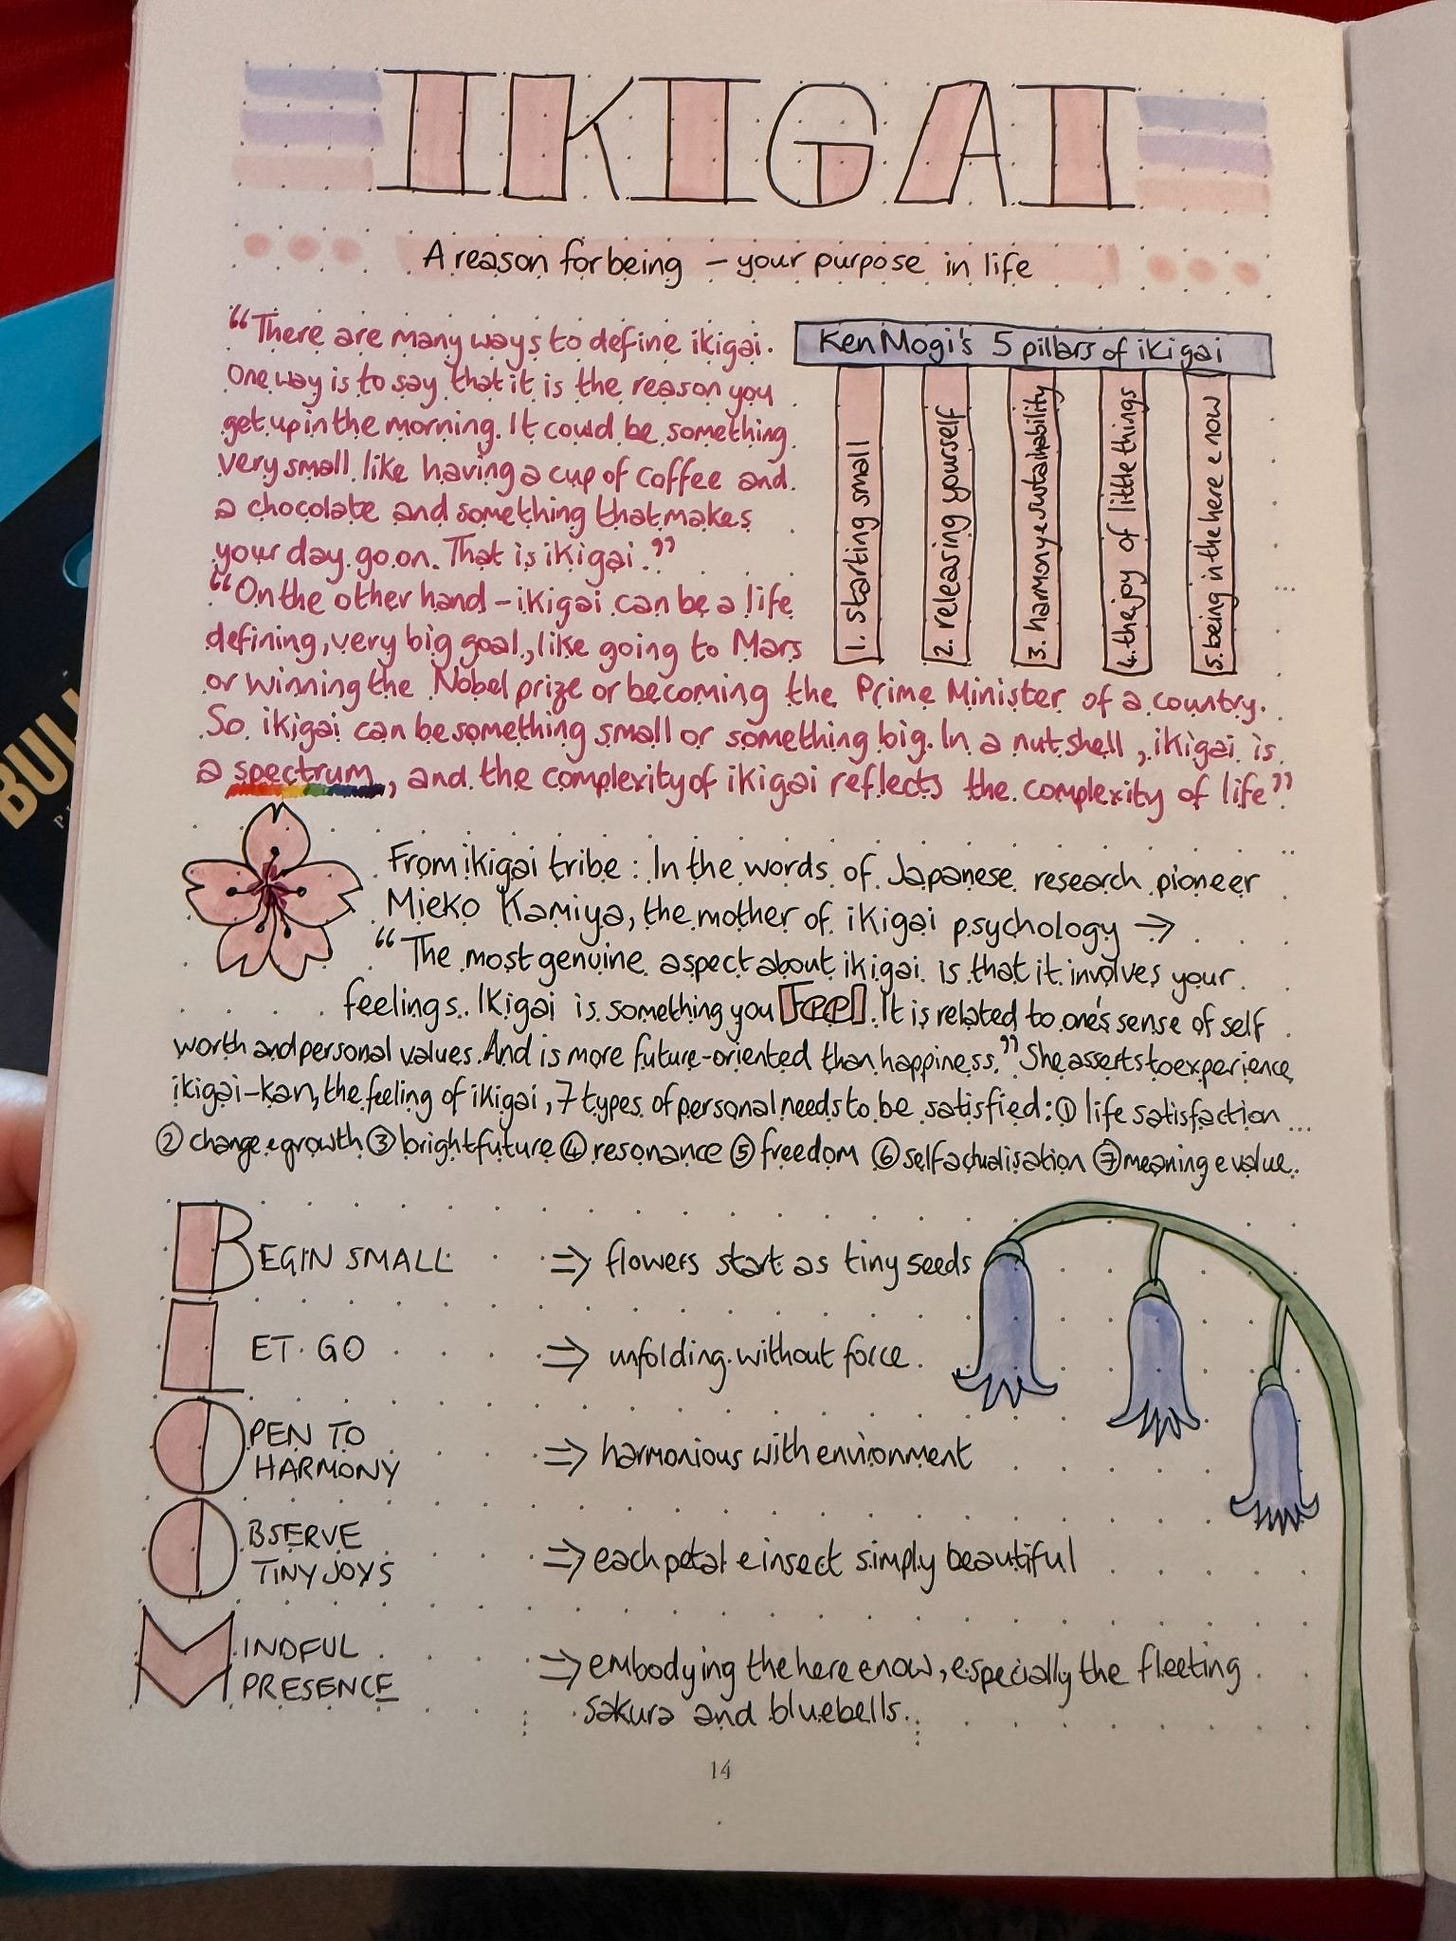 IKIGAI
A reason for being – your purpose in life
“There are many ways to define ikigai.
One way is to say that it is the reason you
get up in the morning. It could be something
very small like having a cup of coffee and
a chocolate and something that makes
your day go on. That is ikigai.”
“On the other hand – ikigai can be a life
defining, very big goal, like going to Mars
or winning the Nobel prize or becoming the Prime Minister of a country.
So ikigai can be something small or something big. In a nutshell, ikigai is
a spectrum, and the complexity of ikigai reflects the complexity of life”
Ken Mogi's 5 pillars of ikigai
1. starting small
2. releasing yourself
3. harmony e sustainability
4. the joy of little things
5. being in the here e now
From ikigai tribe: In the words of Japanese research pioneer
Mieko Kamiya, the mother of ikigai psychology →
“The most genuine aspect about ikigai is that it involves your
feelings. Ikigai is something you Feel. It is related to one's sense of self
worth and personal values. And is more future-oriented than happiness.” She asserts to experience
ikigai-kan, the feeling of ikigai, 7 types of personal needs to be satisfied: ① life satisfaction
② change e growth ③ bright future ④ resonance ⑤ freedom ⑥ self actualisation ⑦ meaning e value.
BEGIN SMALL ⇒ flowers start as tiny seeds
LET GO ⇒ unfolding without force.
OPEN TO
HARMONY ⇒ harmonious with environment
OBSERVE
TINY JOYS ⇒ each petal e insect simply beautiful
MINDFUL
PRESENCE ⇒ embodying the here e now, especially the fleeting
sakura and bluebells.
14
BUL